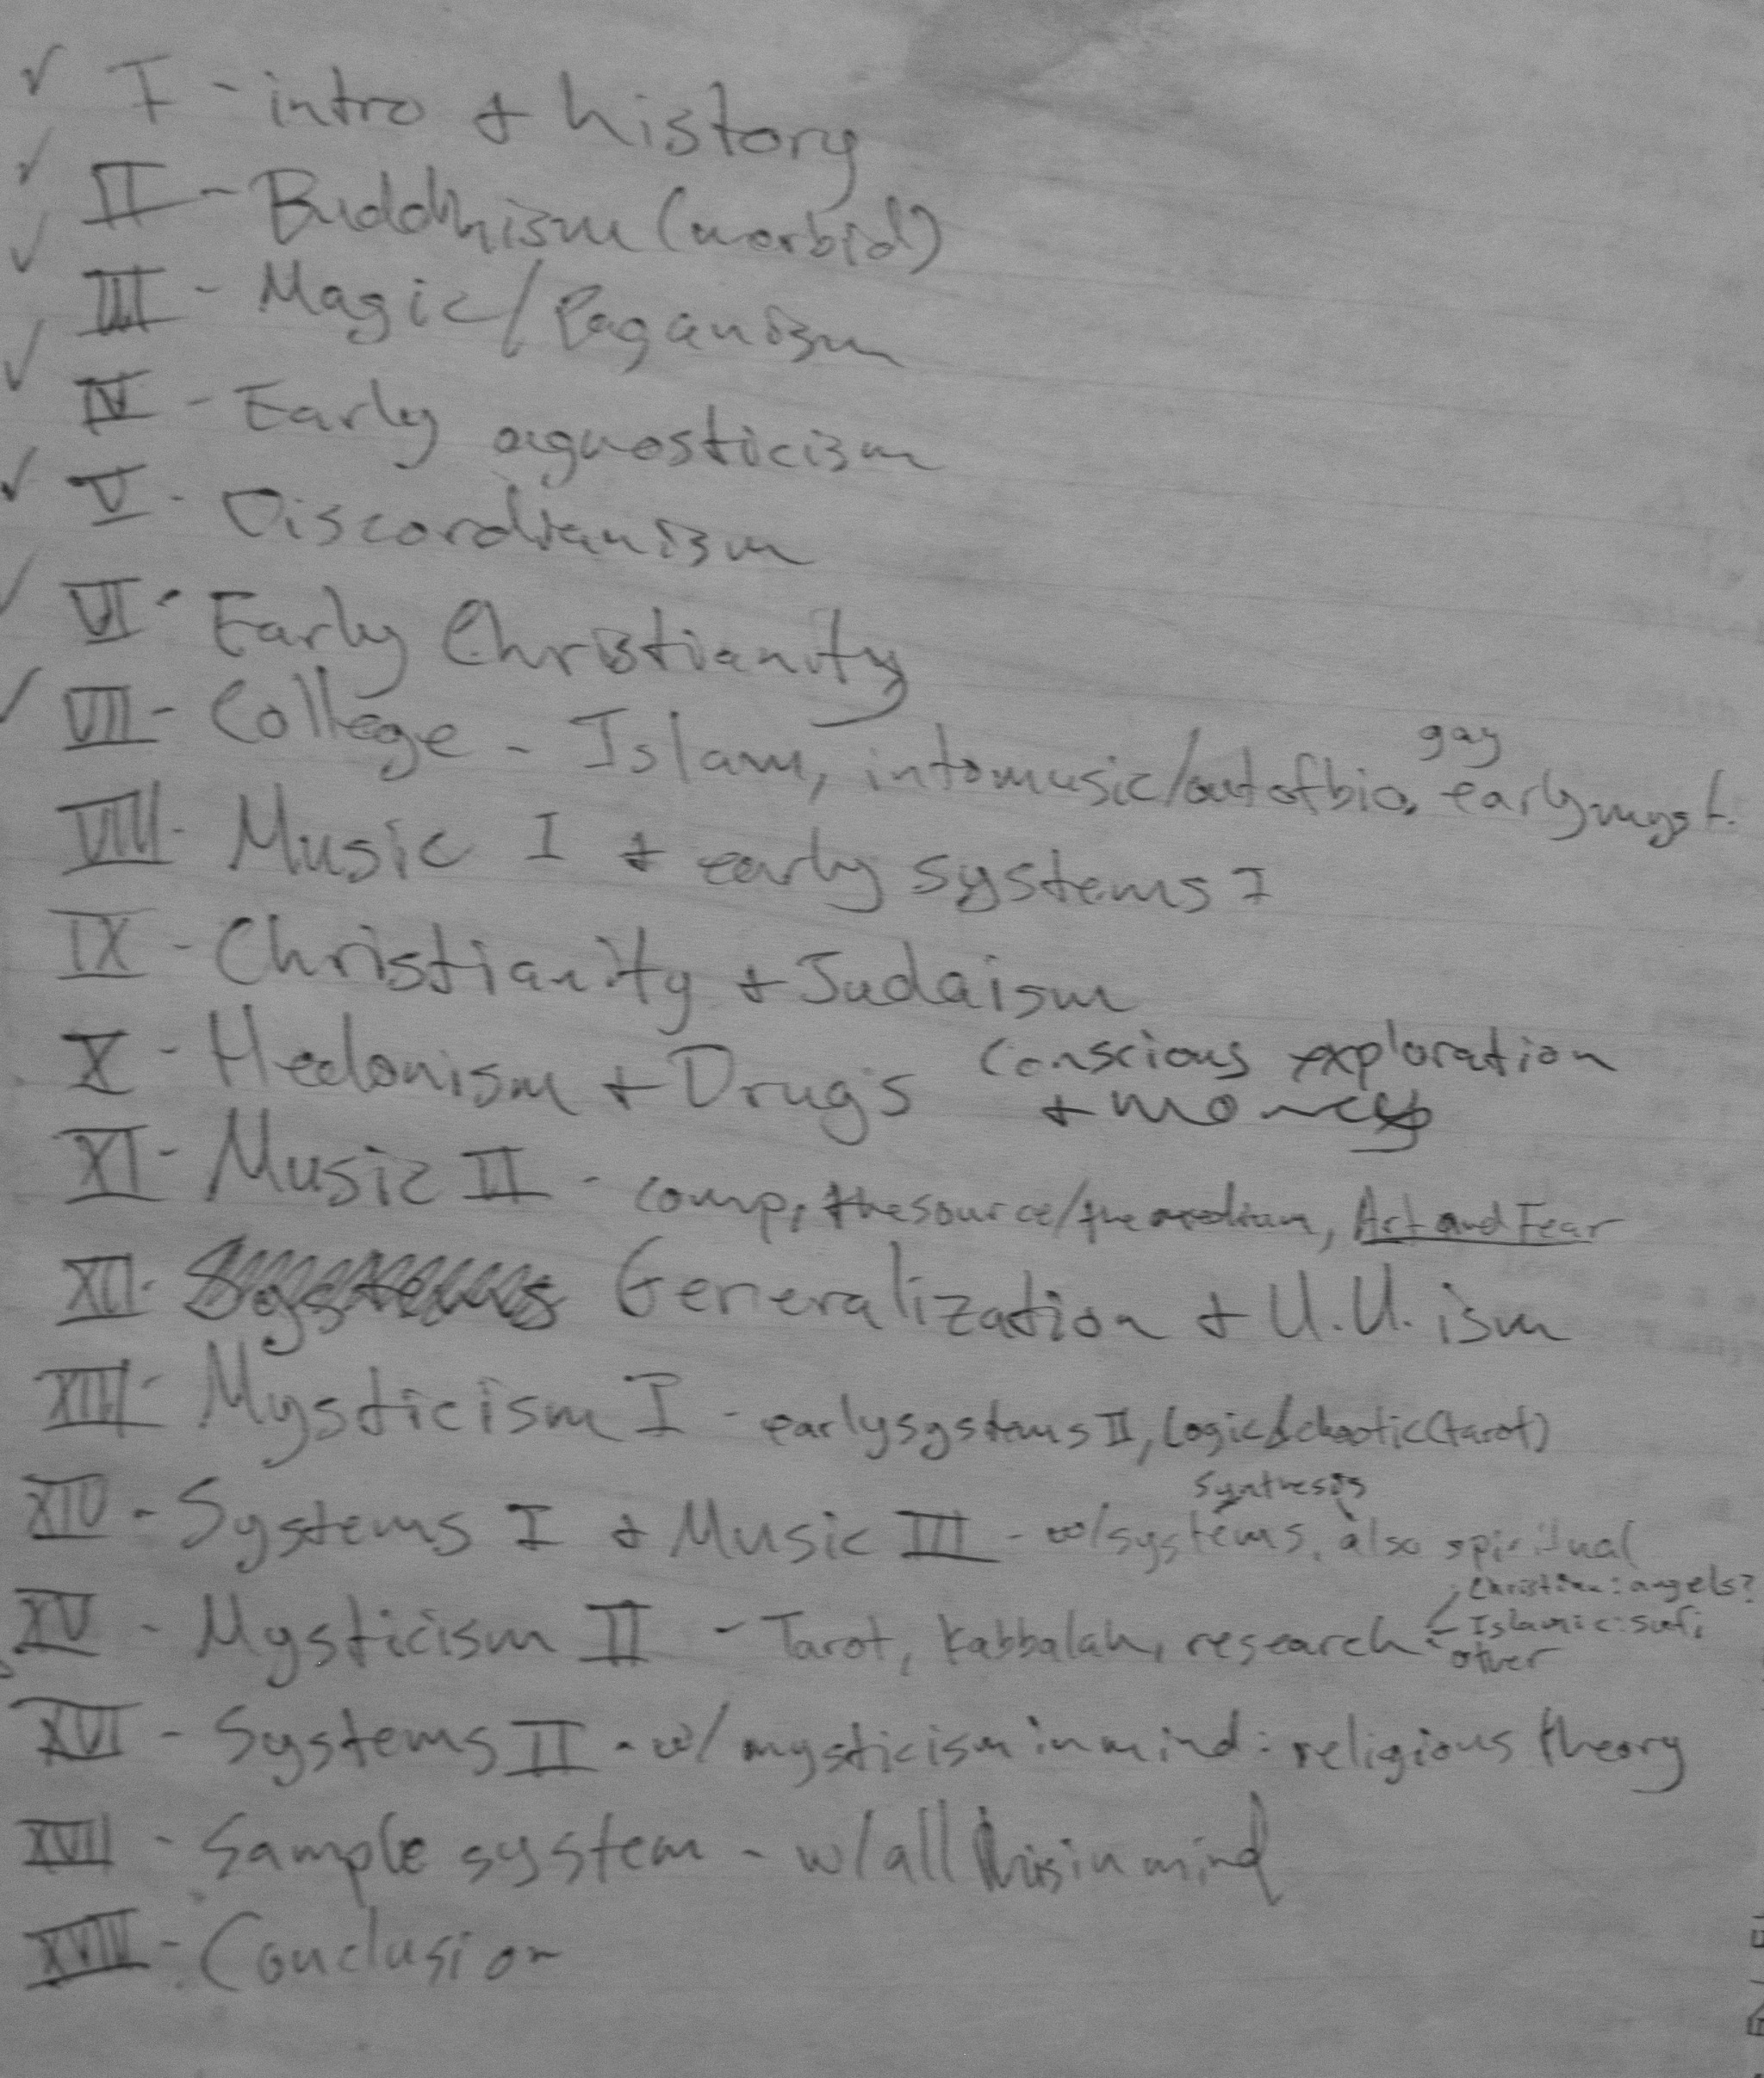 ✓ I - intro + history
✓ II - Buddhism (morbid)
✓ III - Magic/Paganism
✓ IV - Early agnosticism
✓ V - Discordianism
✓ VI - Early Christianity
✓ VII - College - Islam, into music/out of bio, gay early myst.
VIII - Music I + early systems I
IX - Christianity + Judaism
X - Hedonism + Drugs conscious exploration
+ money
XI - Music II - comp, the source/the medium, Art and Fear
XII - Systems Generalization + U.U.ism
XIII - Mysticism I - early systems II, logic & chaotic (tarot)
synthesis
XIV - Systems I + Music III - w/systems, also spiritual
Christian: angels?
XV - Mysticism II - Tarot, Kabbalah, research - Islamic: sufi
other
XVI - Systems II - w/ mysticism in mind: religious theory
XVII - Sample system - w/ all this in mind
XVIII - Conclusion